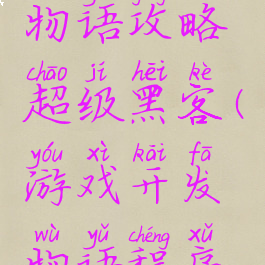 物语攻略
chāo jí hēi kè
超级黑客(
yóu xì kāi fā
游戏开发
wù yǔ chéng xù
物语程序